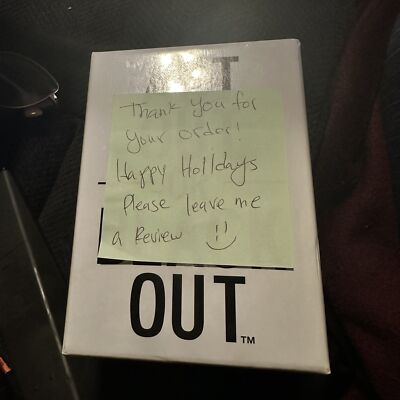 Thank you for
your order!
Happy Hollidays
Please leave me
a Review :)
OUT™